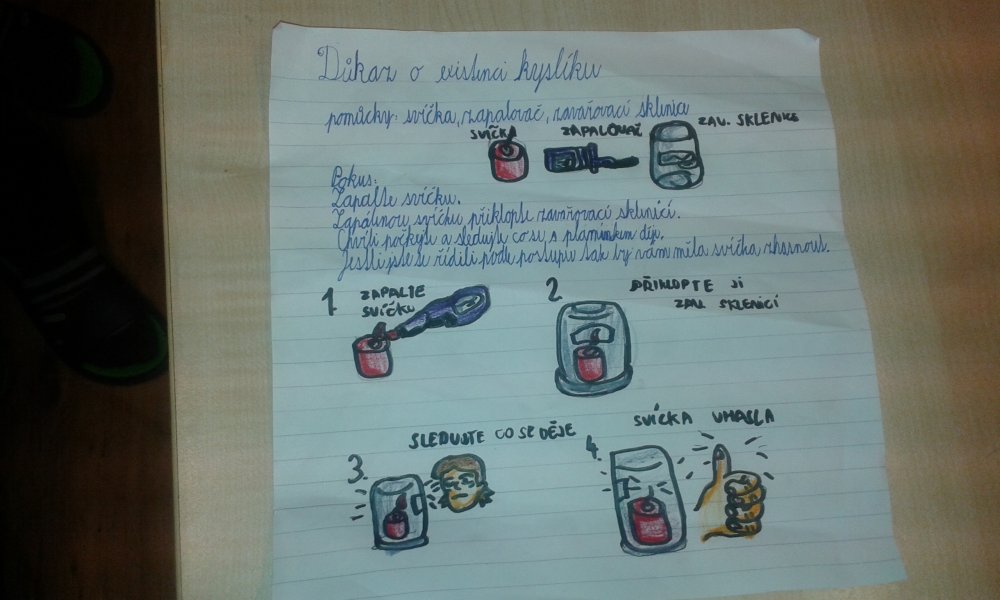 Důkaz o existenci kyslíku
pomůcky: svíčka, zapalovač, zavařovací sklenice
SVÍČKA ZAPALOVAČ ZAV. SKLENICE
Pokus:
Zapalte svíčku.
Zapálenou svíčku přiklopte zavařovací sklenicí.
Chvíli počkejte a sledujte co se s plamínkem děje.
Jestli jste se řídili podle postupu tak by vám měla svíčka zhasnout.
1. ZAPALTE
SVÍČKU
2. PŘIKLOPTE JI
ZAV. SKLENICÍ
3. SLEDUJTE CO SE DĚJE
4. SVÍČKA UHASLA